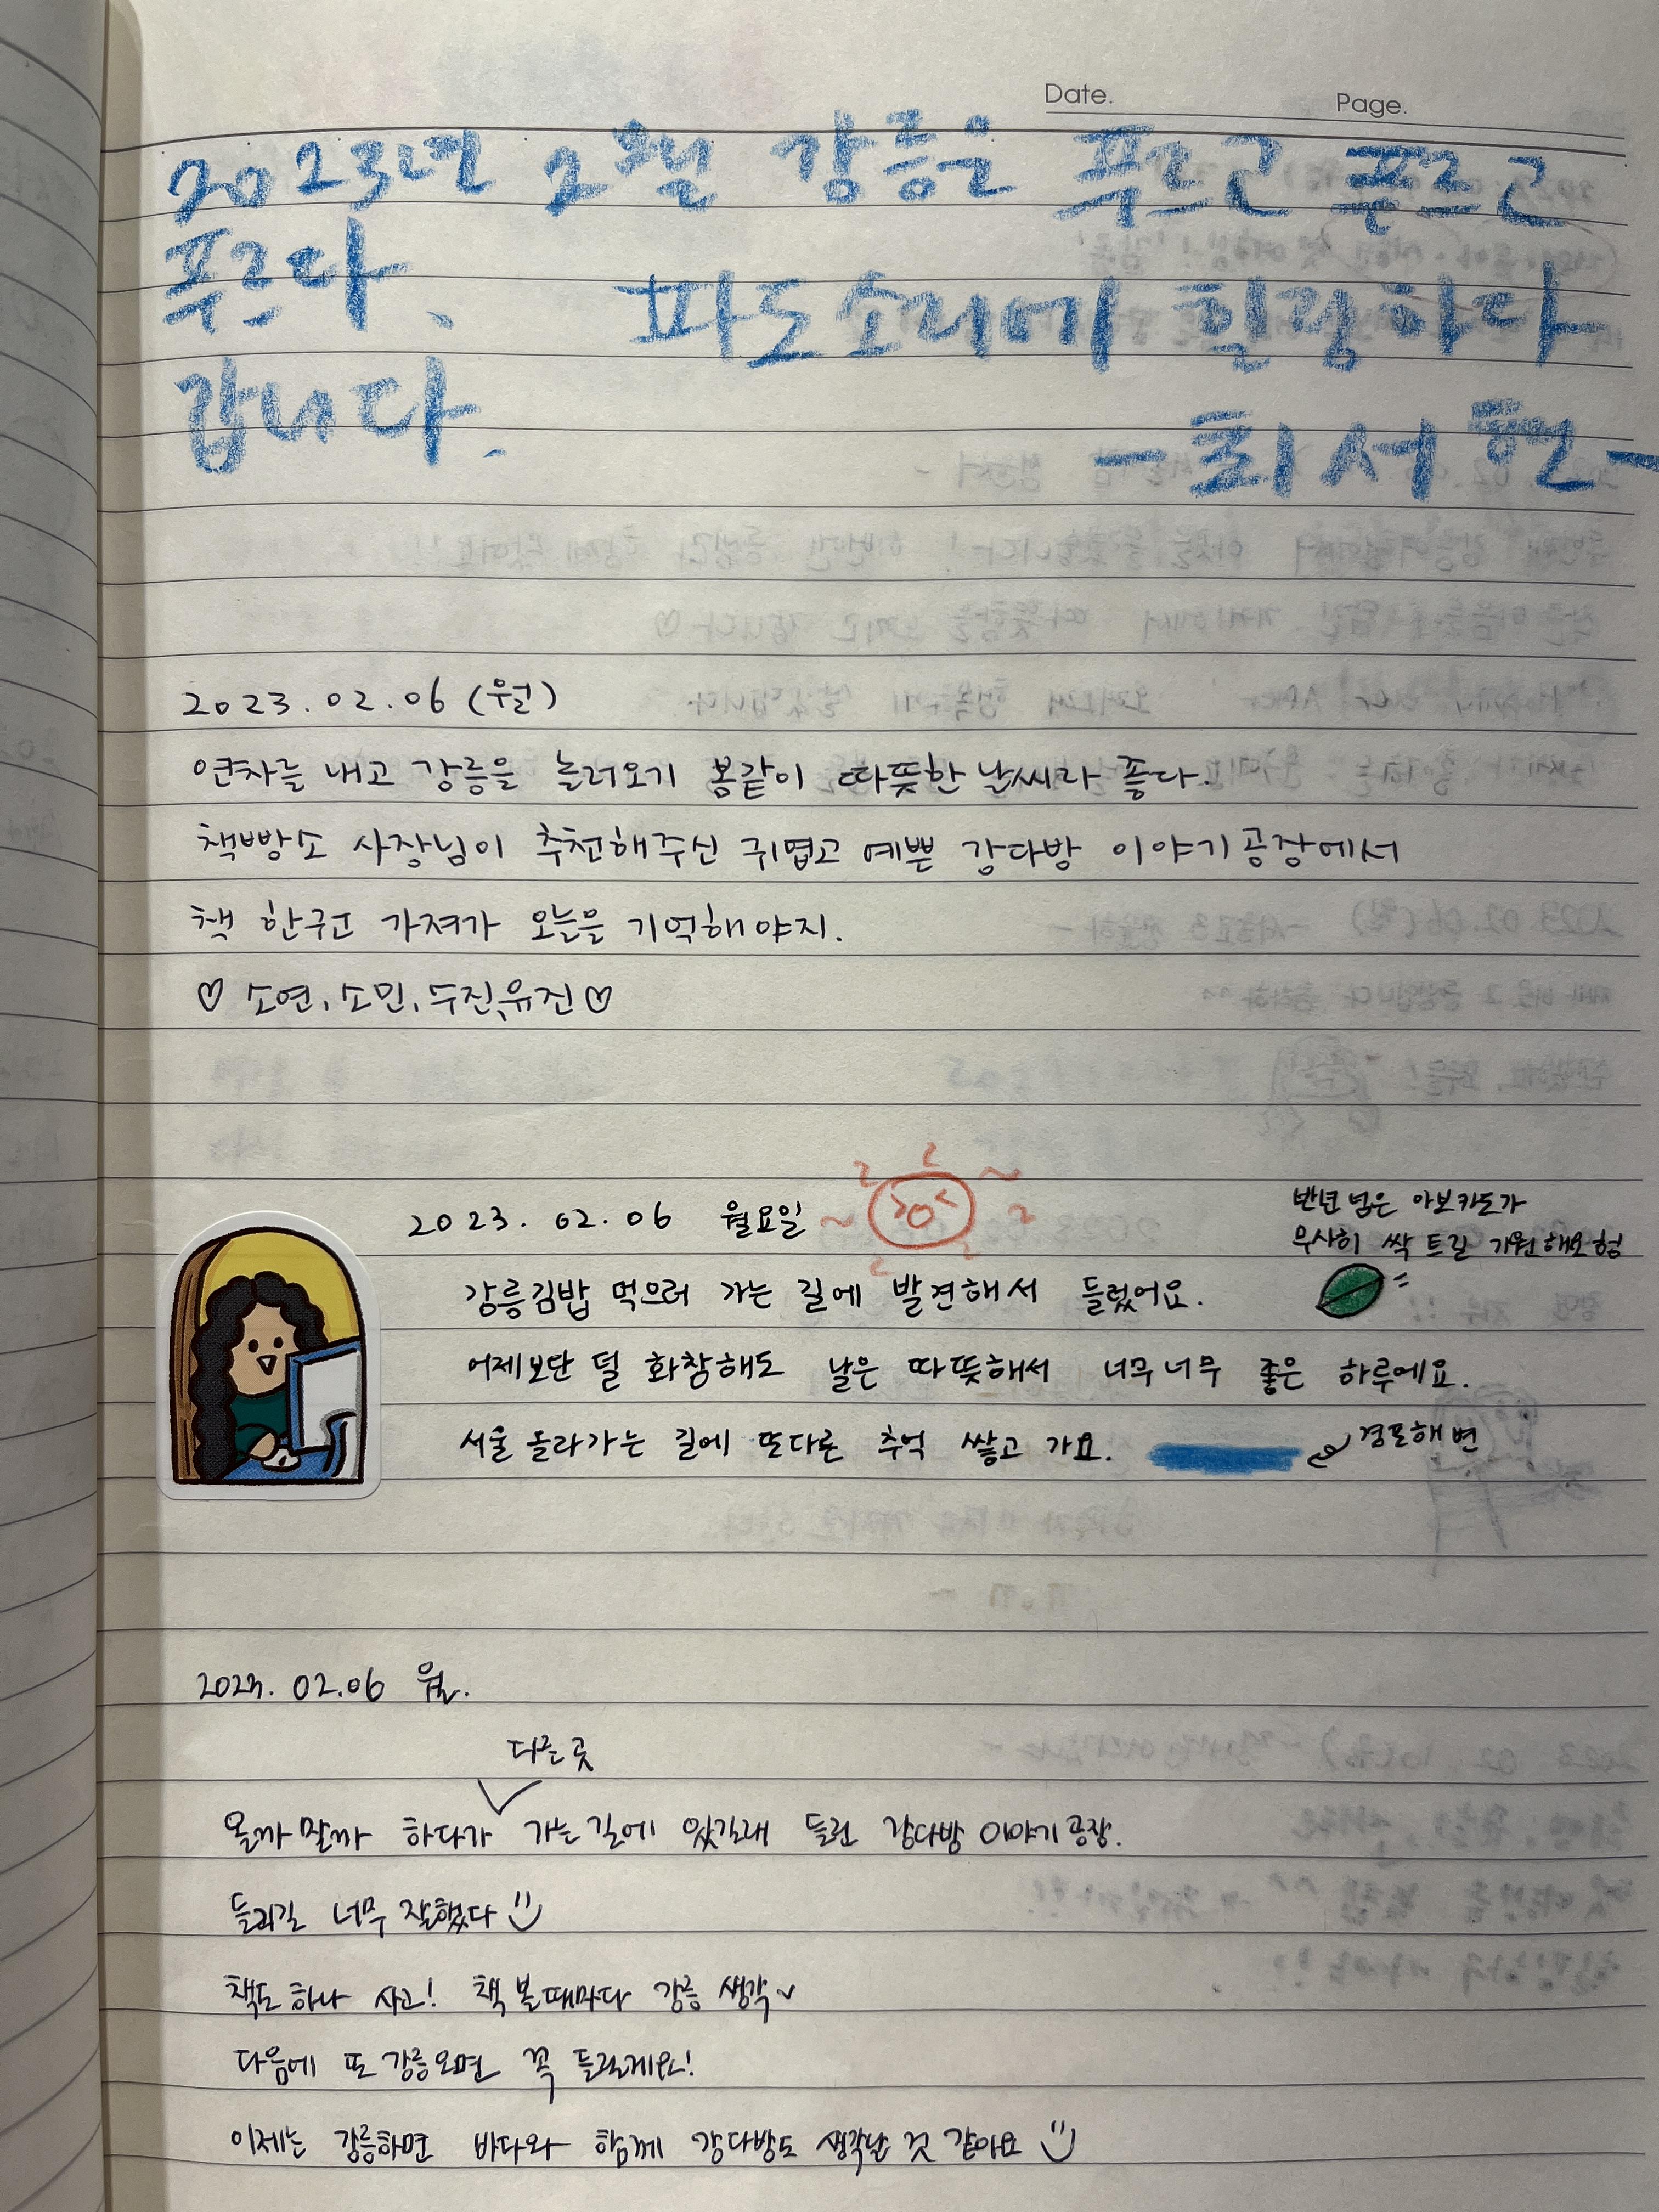 Date.
Page.
2023년 2월 강릉은 푸르고 푸르고
푸르다. 파도소리에 힐링하다
갑니다.
-최서현-
2023.02.06 (월)
연차를 내고 강릉을 놀러오기 봄같이 따뜻한 날씨라 좋다.
책빵소 사장님이 추천해주신 귀엽고 예쁜 강다방 이야기공장에서
책 한권 가져가 오늘을 기억해야지.
♡ 소연, 소민, 수진, 유진 ♡
2023. 02. 06 월요일
반년 넘은 아보카도가
무사히 싹 트길 기원해보형
강릉김밥 먹으러 가는 길에 발견해서 들렀어요.
어제보단 덜 화창해도 날은 따뜻해서 너무너무 좋은 하루에요.
서울 올라가는 길에 또다른 추억 쌓고 가요.
경포해변
2023. 02.06 월.
다른 곳
올까말까 하다가 가는길에 있길래 들린 강다방 이야기공장.
들리길 너무 잘했다
책도 하나 사고! 책 볼때마다 강릉 생각
다음에 또 강릉오면 꼭 들릴게요!
이제는 강릉하면 바다와 함께 강다방도 생각날 것 같아요